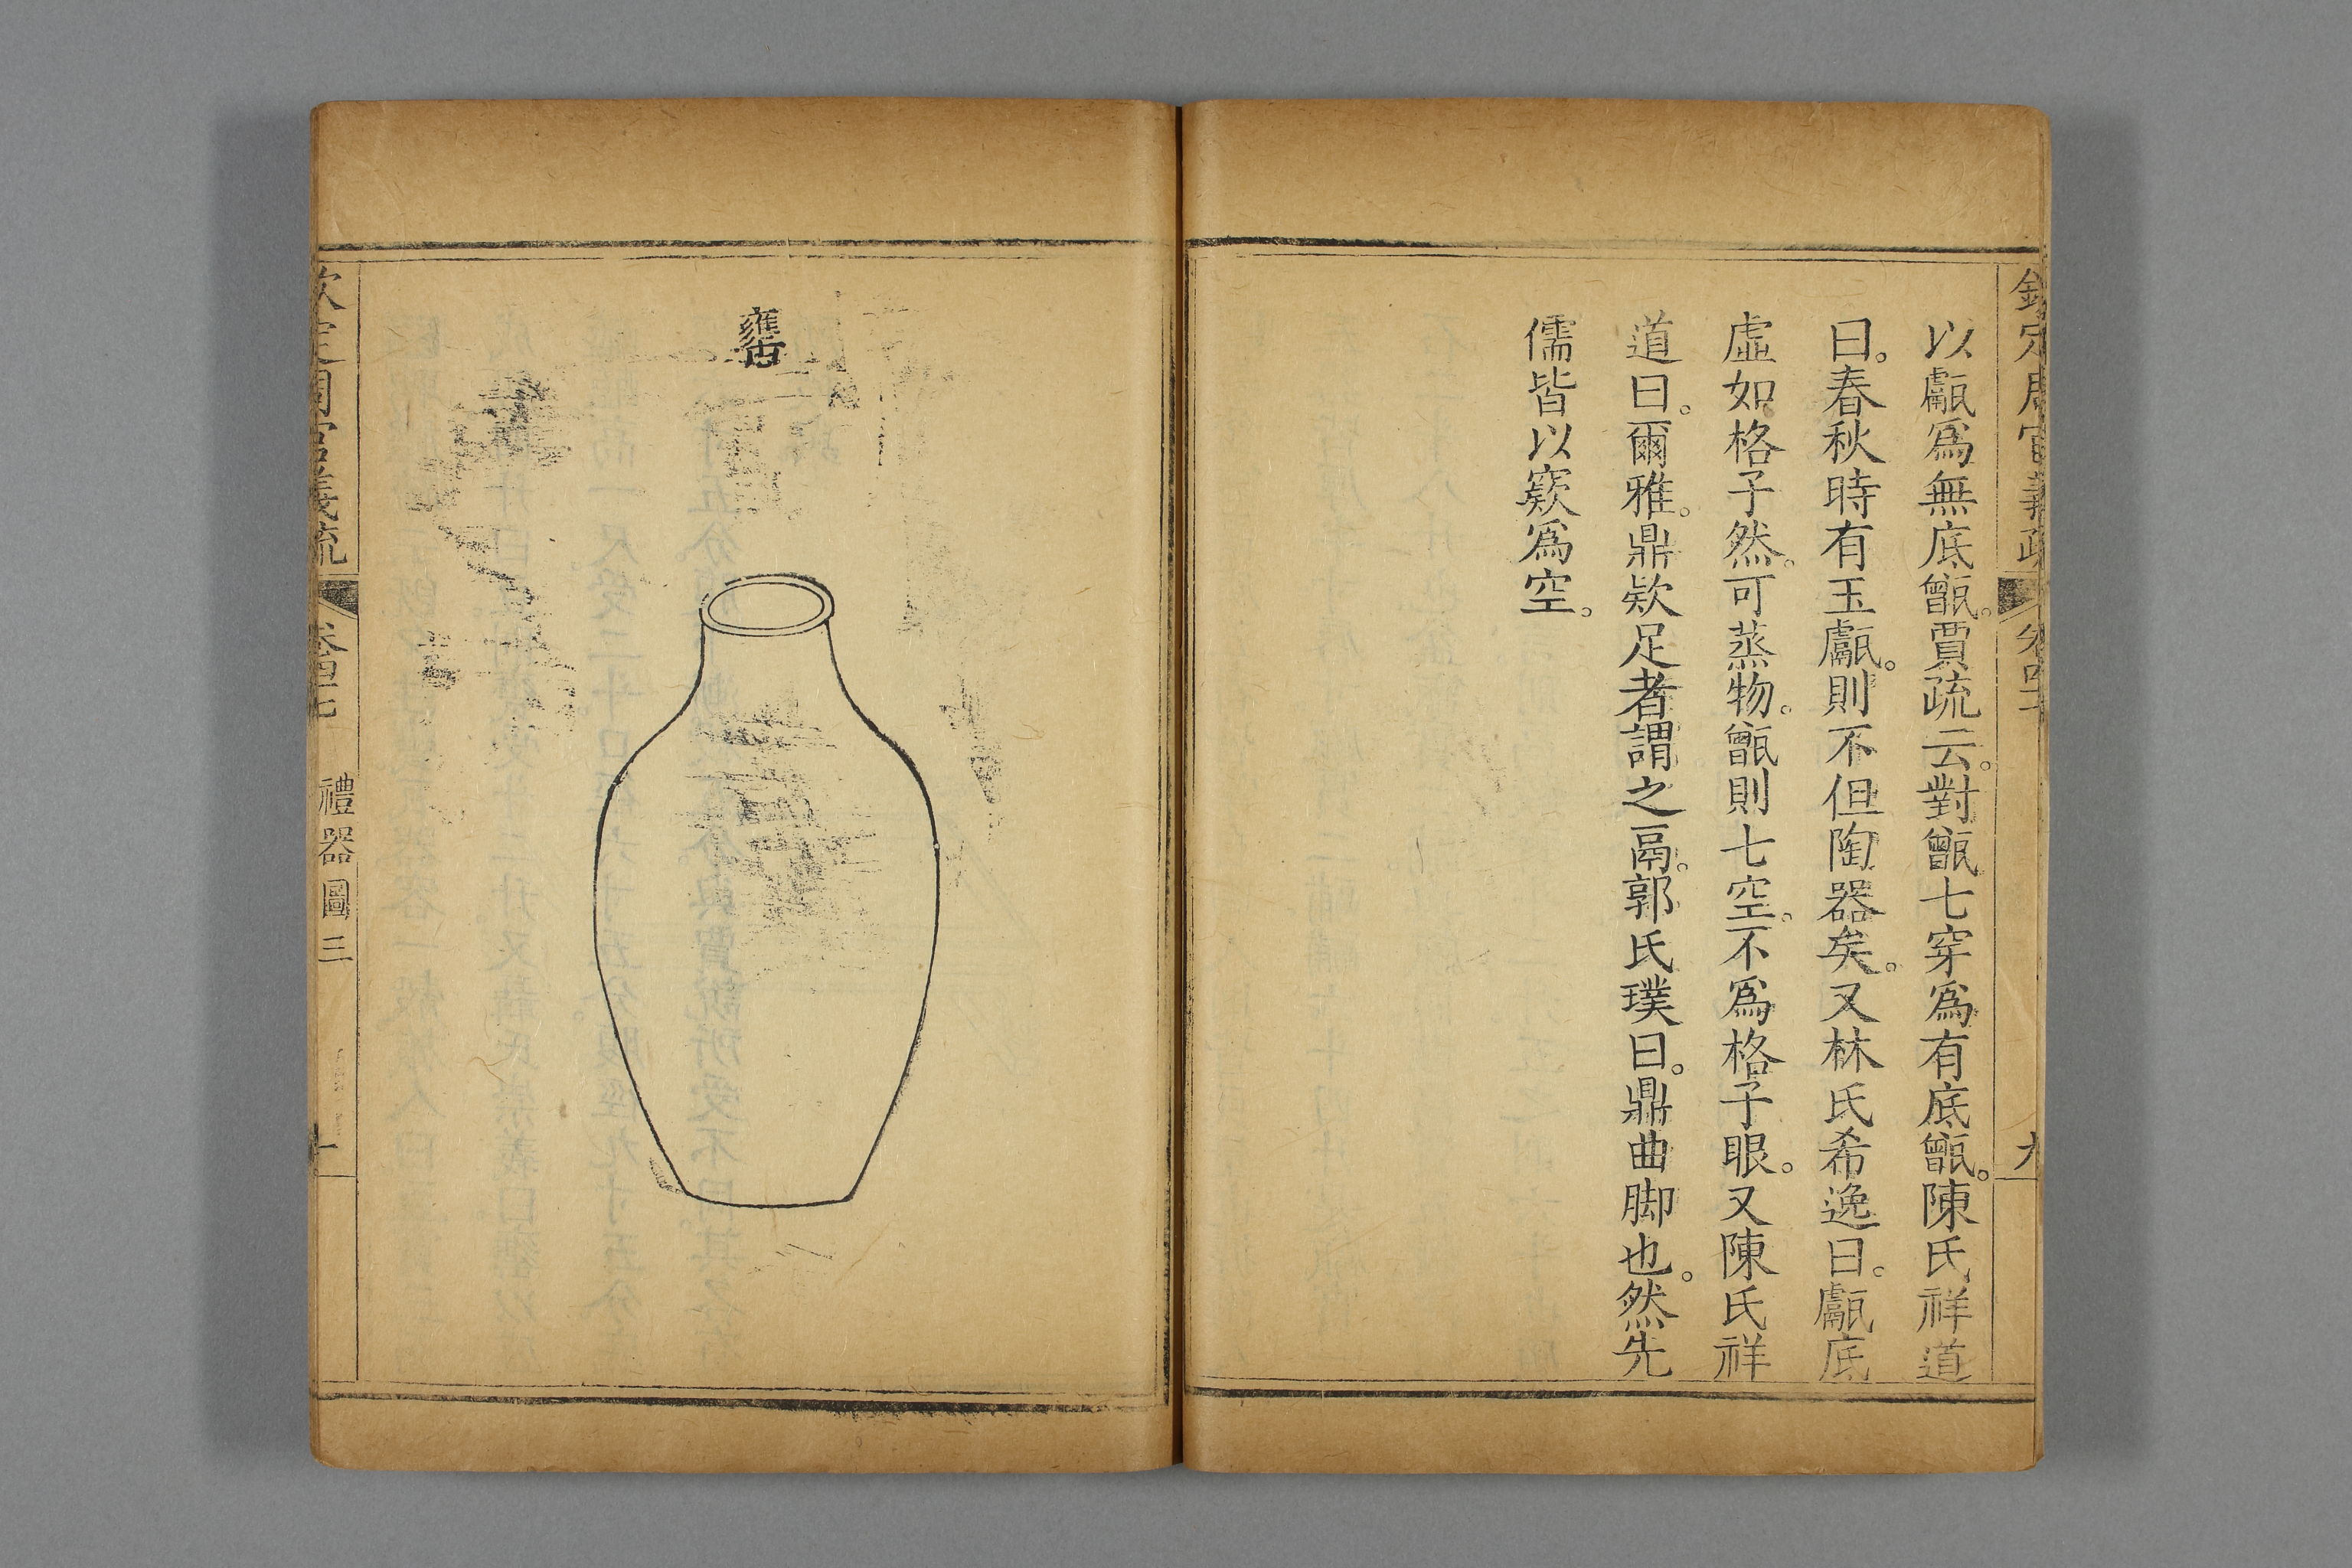 欽定周官義疏 卷四十 九
以甗爲無底甑。賈疏云。對甑七穿爲有底甑。陳氏祥道
曰。春秋時有玉甗。則不但陶器矣。又林氏希逸曰。甗底
虛如格子然。可蒸物。甑則七空。不爲格子眼。又陳氏祥
道曰。爾雅。鼎欵足者謂之鬲。郭氏璞曰。鼎曲脚也。然先
儒皆以窾爲空。
欽定周官義疏 卷四十七 禮器圖三 十